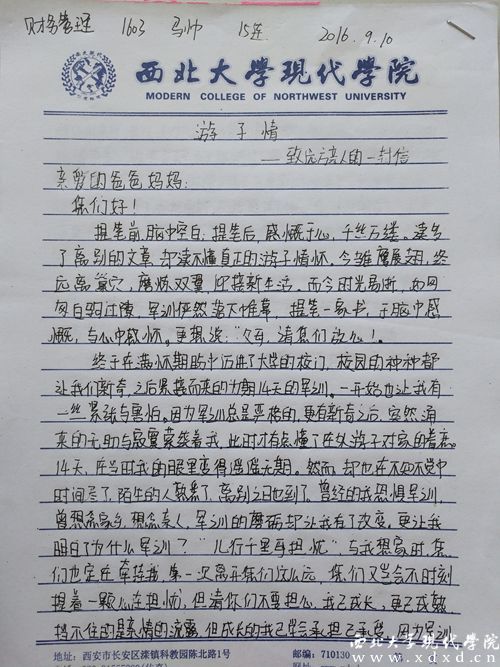 财务管理 1603 马帅 15连 2016.9.10
西北大學現代學院
MODERN COLLEGE OF NORTHWEST UNIVERSITY
游子情
——致远方亲人的一封信
亲爱的爸爸妈妈:
您们好!
提笔前,脑中空白;提笔后,感慨于心,千丝万缕。读多
了离别的文章,却读不懂真正的游子情怀。今雏鹰展翅,终
远离巢穴,磨炼双翼,迎接新生活。而今时光易逝,如同
白驹过隙,军训俨然落下帷幕,提笔一易书,于脑中感
慨,与心中感怀。更想说:请您们放心!
终于在满怀期盼中迈进了大学的校门,校园的种种都
让我们新奇,之后接而来的为期14天的军训。一开始也让我有
一丝紧张与害怕。因为军训总是严格的,更有新奇之后,突然涌
来的无助与寂寞萦绕着我,此时才有点懂了在外游子对家的眷恋。
14天,在当时我的眼里变得遥遥无期。然而,却也在不知不觉中
时间了,陌生的人熟悉了,离别之日也到了。曾经的我恐惧军训,
曾想念家乡,想念亲人,军训的磨砺却让我有了改变。更让我
明白了为什么军训?“儿行千里母担忧”与我想家时,您
们也定在牵挂我,第一次离开您们这么远,您们又岂会不时刻
揣着一颗心在担忧,但请你们不要担心,我已成长,更已成熟
挡不住的是亲情的流露,但成长的我已学会承担己子,因为军训
地址:西安市长安区滦镇科教园陈北路1号
邮编:710130
西北大学现代学院
www.xdxd.cn